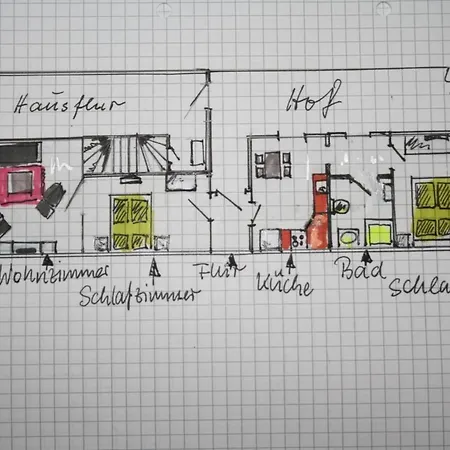 Hausflur
Hof
Wohnzimmer
Schlafzimmer
Flur
Küche
Bad
Schla